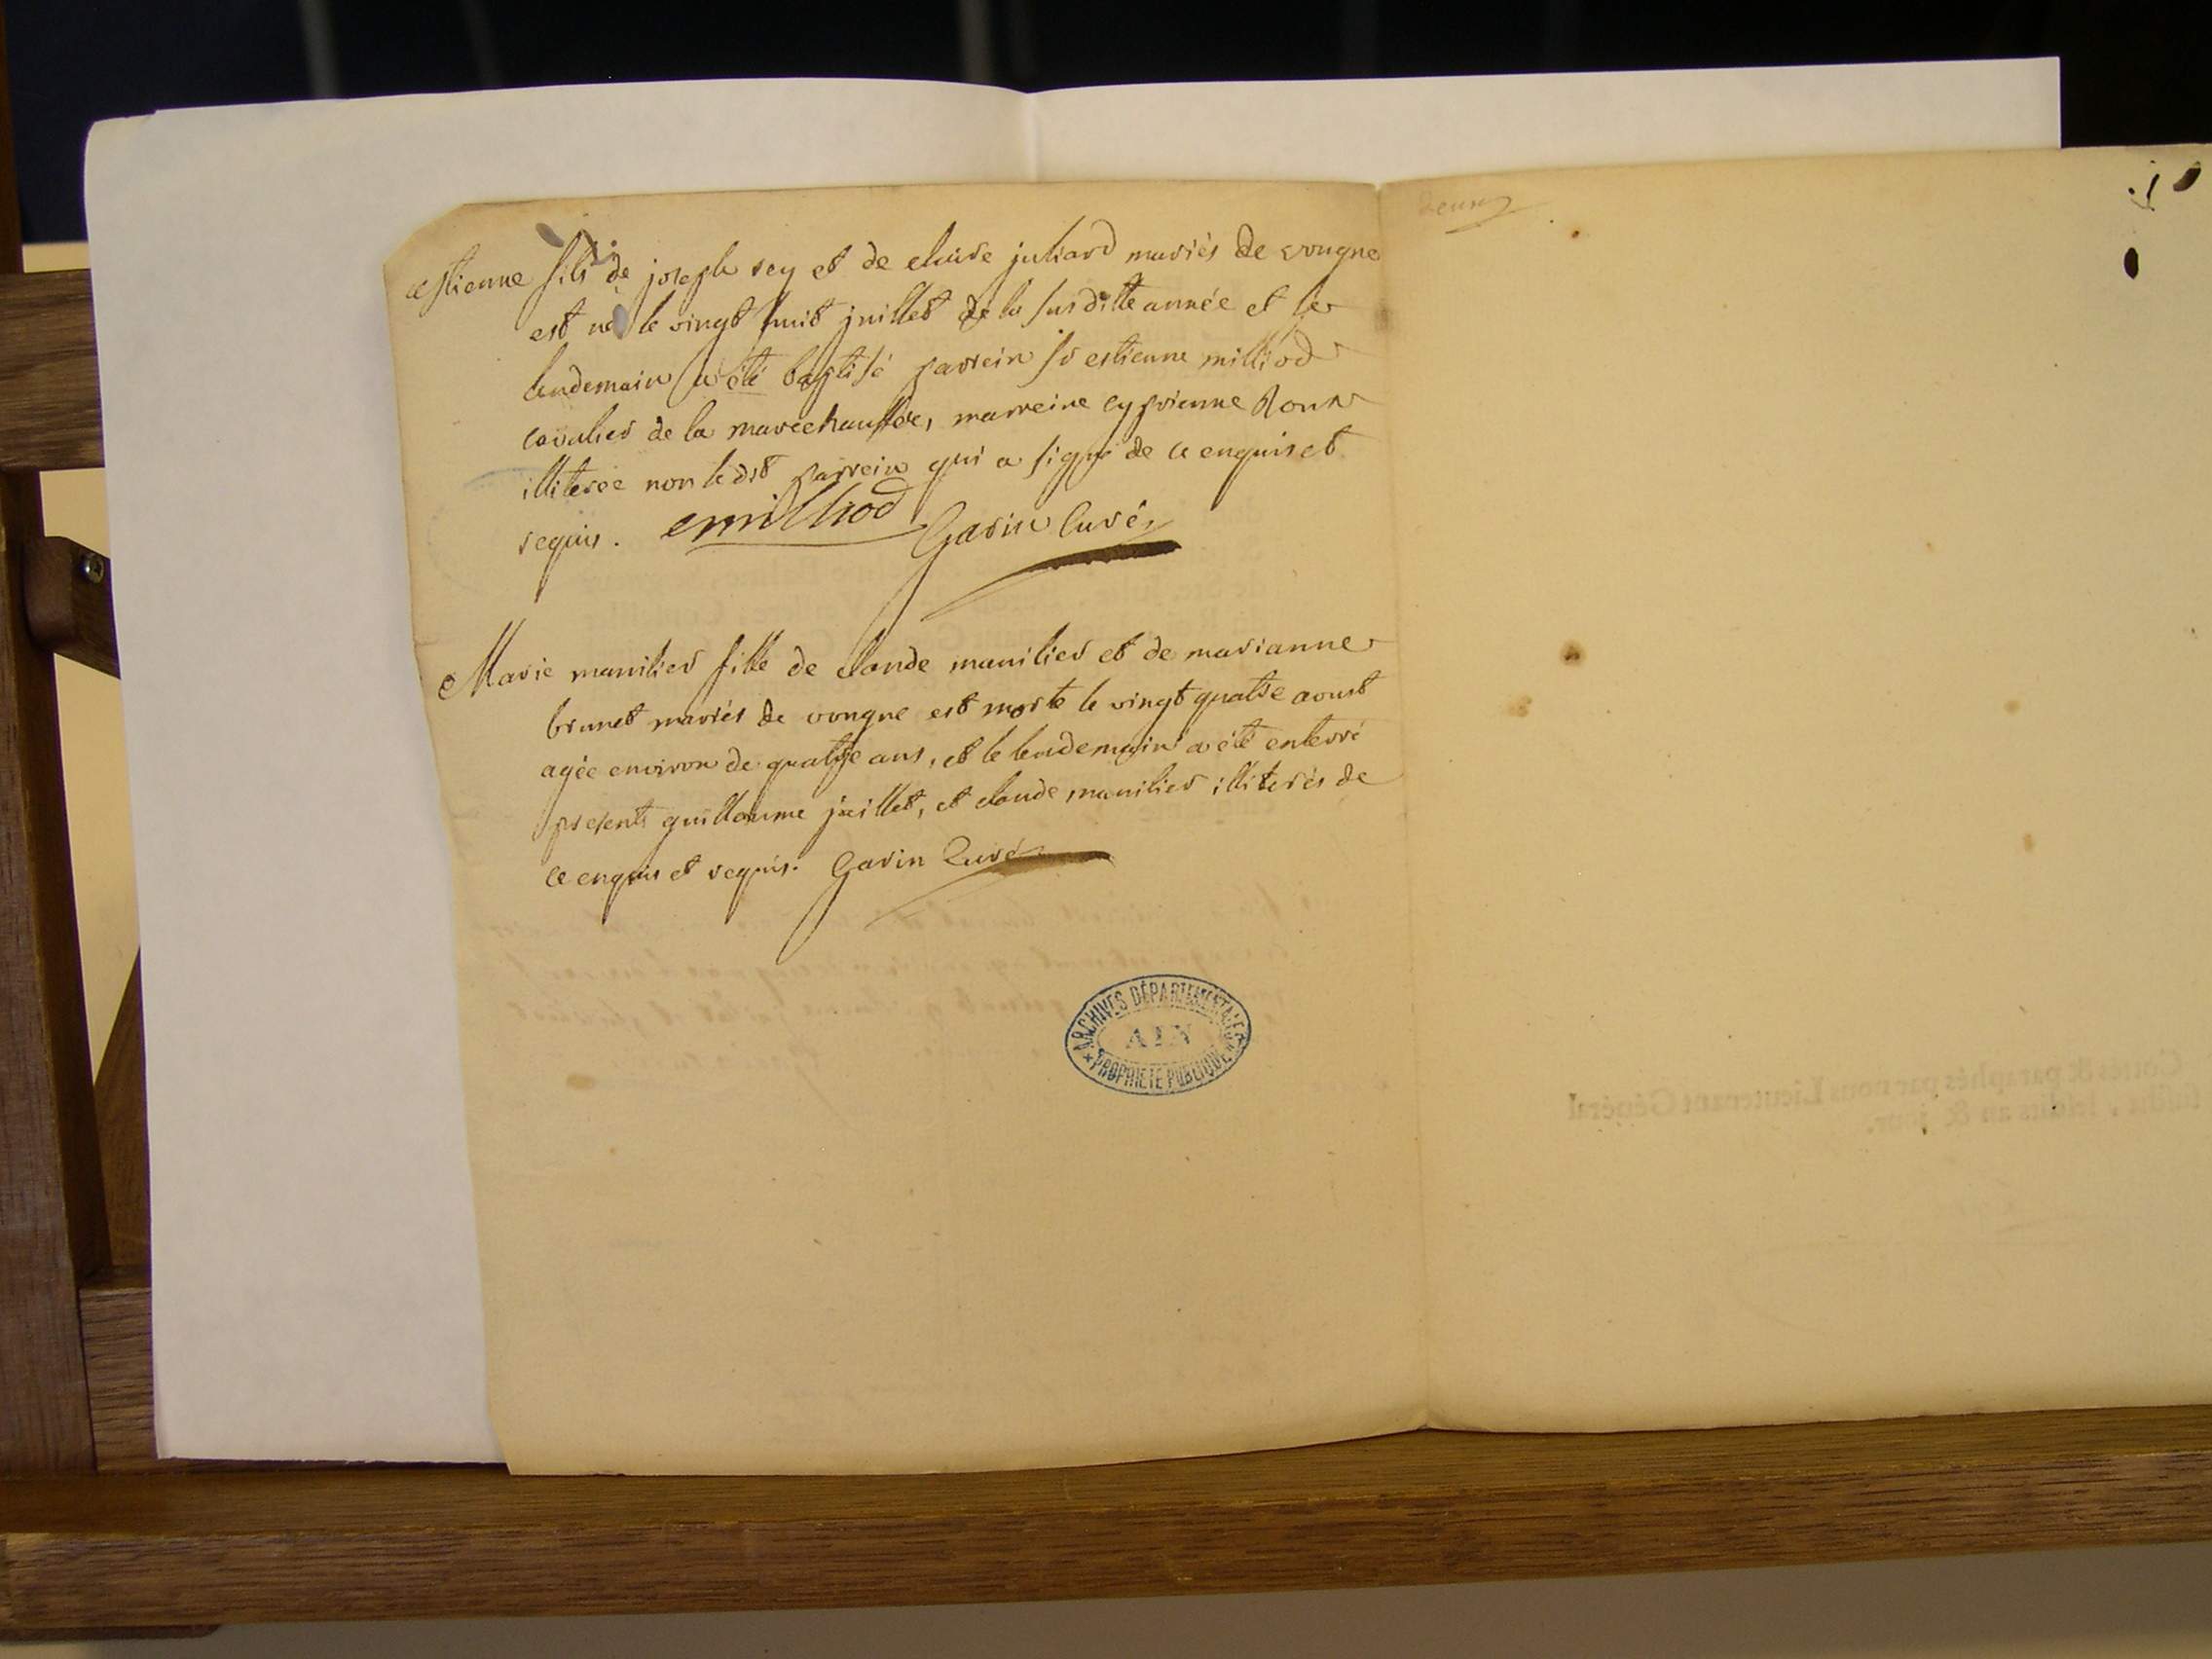 estienne fils de joseph rey et de claire juliard mariés de vougne
est né le vingt huit juillet de la susditte année et le
lendemain a été baptisé parrein sr estienne milliod
cavalier de la marechaussée, marreine cyprienne Roux
illiterée non ledit parrein qui a signé de ce enquis et
requis. emilliod Gavin Curé
Marie manilier fille de claude manilier et de marianne
brunet mariés de vougne est morte le vingt quatre aoust
agée environ de quatre ans, et le lendemain a été enterré
presents guillaume juillet, et claude manilier illiterés de
ce enquis et requis. Gavin Curé
ARCHIVES DÉPARTEMENTALES
AIN
PROPRIÉTÉ PUBLIQUE
deux
Cottés & paraphés par nous Lieutenant Général
susdit, lesdits an & jour.